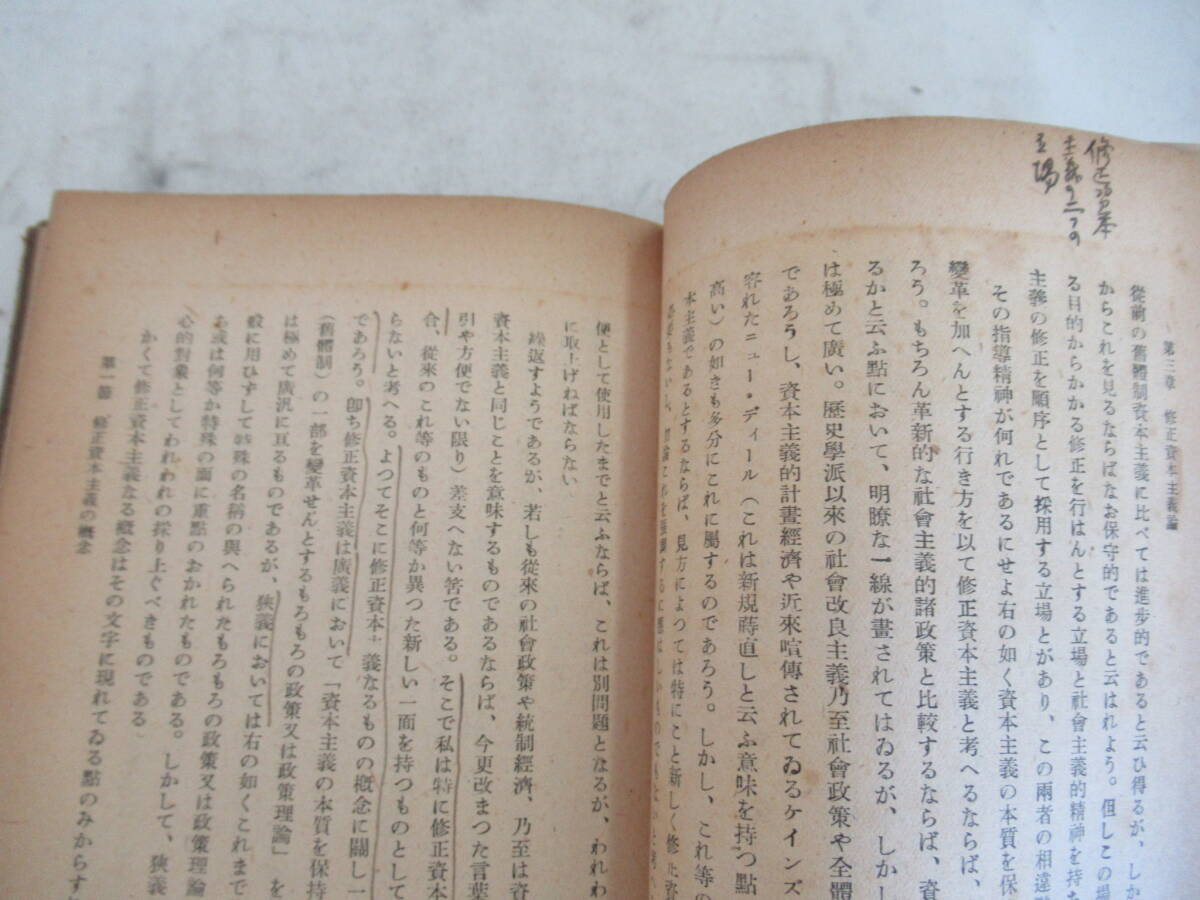 修正資本
主義の二つの
立場
第三章 修正資本主義論
從前の舊體制資本主義に比べては進步的であると云ひ得るが、しか
からこれを見るならばなお保守的であると云はれよう。但しこの場
る目的からかかる修正を行はんとする立場と社會主義的精神を持ち
主義の修正を順序として採用する立場とがあり、この兩者の相違點
その指導精神が何れであるにせよ右の如く資本主義の本質を保
變革を加へんとする行き方を以て修正資本主義と考へるならば、
ろう。もちろん革新的な社會主義的諸政策と比較するならば、資
るかと云ふ點において、明瞭な一線が畫されてはゐるが、しかし
は極めて廣い。歷史學派以來の社會改良主義乃至社會政策や全體
であろうし、資本主義的計畫經濟や近來喧傳されてゐるケインズ
容れたニュー・ディール（これは新規蒔直しと云ふ意味を持つ點
高い）の如きも多分にこれに屬するのであろう。しかし、これ等の
本主義であるとするならば、見方によつては特にこと新しく修正資
便として使用したまでと云ふならば、これは別問題となるが、われわ
に取上げねばならない
繰返すようであるが、若しも從來の社會政策や統制經濟、乃至は資
資本主義と同じことを意味するものであるならば、今更改まつた言葉
引や方便でない限り）差支へない筈である。そこで私は特に修正資本
合、從來のこれ等のものと何等か異つた新しい一面を持つものとして
らないと考へる。よつてそこに修正資本主義なるものの概念に關し一
であろう。卽ち修正資本主義は廣義において「資本主義の本質を保持
（舊體制）の一部を變革せんとするもろもろの政策又は政策理論」を
は極めて廣汎に亘るものであるが、狹義においては右の如くこれまで
般に用ひずして特殊の名稱の與へられたもろもろの政策又は政策理論
あ或は何等か特殊の面に重點のおかれたものである。しかして、狹義
心的對象としてわれわれの採り上ぐべきものである
かくて修正資本主義なる概念はその文字に現れてゐる點のみからす
第一節 修正資本主義の概念